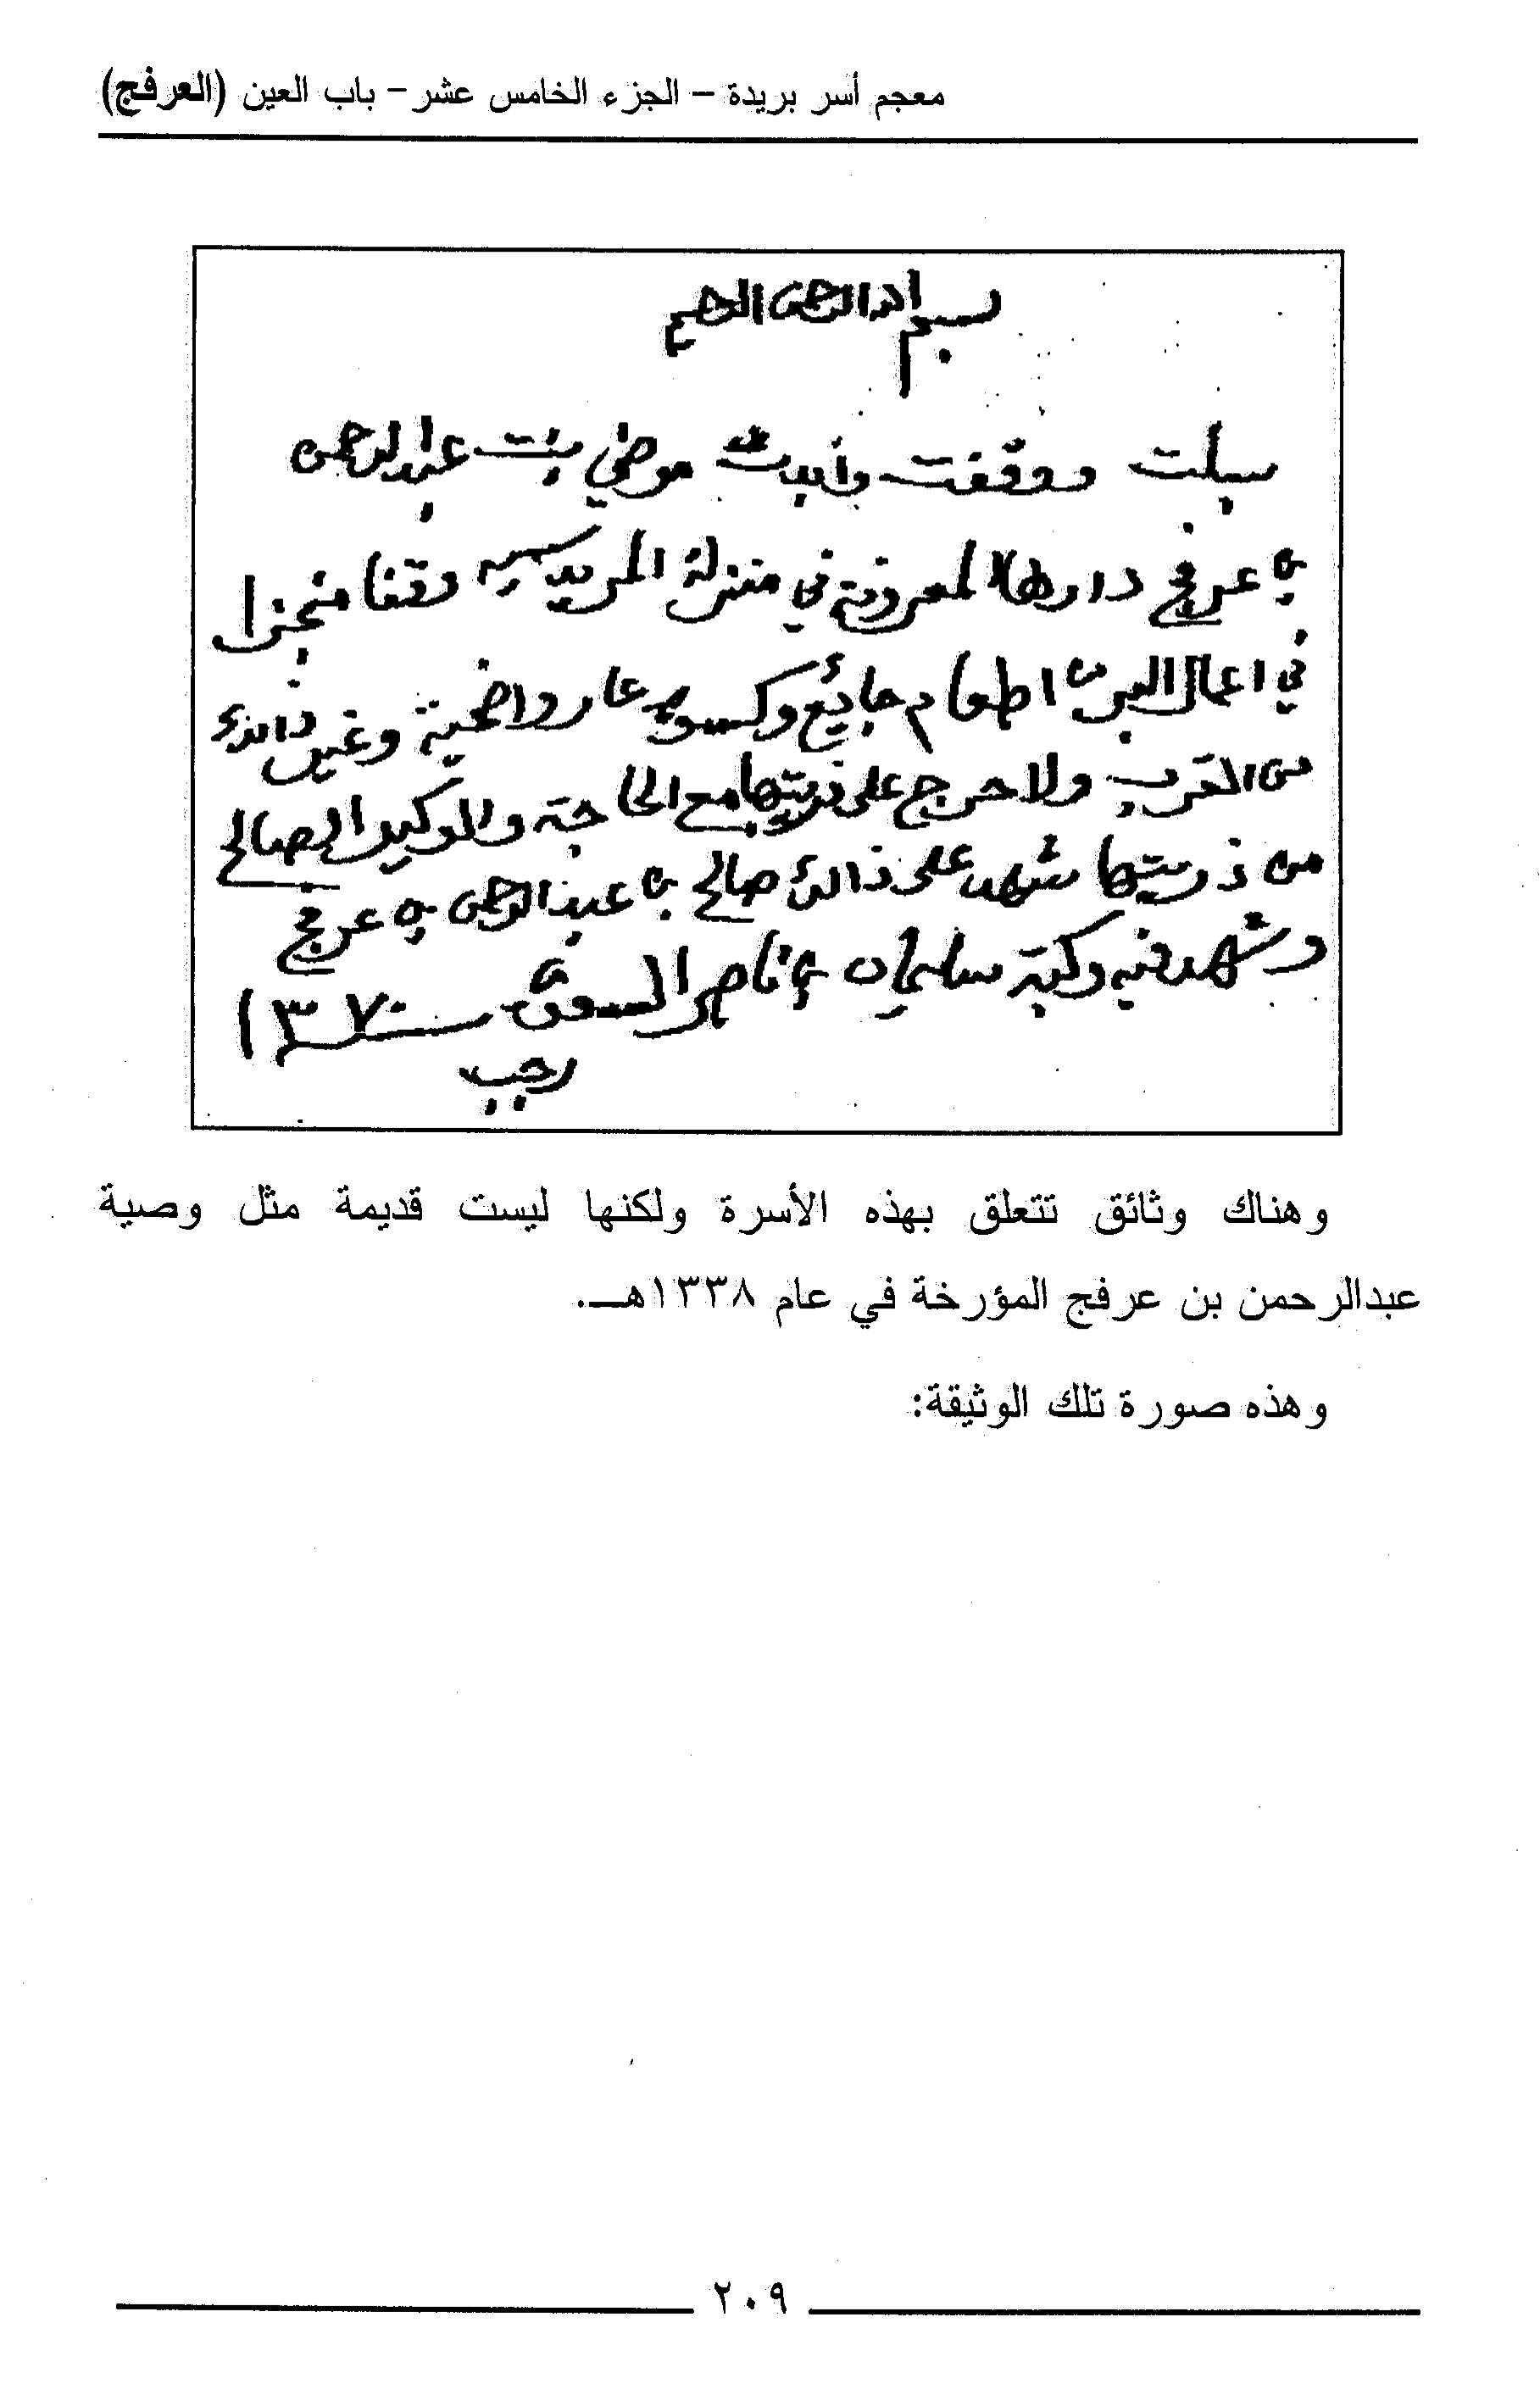 معجم أسر بريدة – الجزء الخامس عشر – باب العين (العرفج)
بسم الله الرحمن الرحيم
سبلت ووقفت وأبدت موضي بنت عبدالرحمن
بن عرفج دارها المعروفة في منزلة المريديسيه وقفا منجزا
في اعمال البر من اطعام جائع وكسوة عار واضحية وغير ذالك
من القرب ولا حرج على ذريتها مع الحاجة والوكيل الصالح
من ذريتها شهد على ذالك صالح بن عبدالرحمن بن عرفج
وشهد فيه وكتبه سليمان بن ناصر السـ سنة ١٣٧٠
رجب
وهناك وثائق تتعلق بهذه الأسرة ولكنها ليست قديمة مثل وصية
عبدالرحمن بن عرفج المؤرخة في عام ١٣٣٨هـ.
وهذه صورة تلك الوثيقة:
٢٠٩